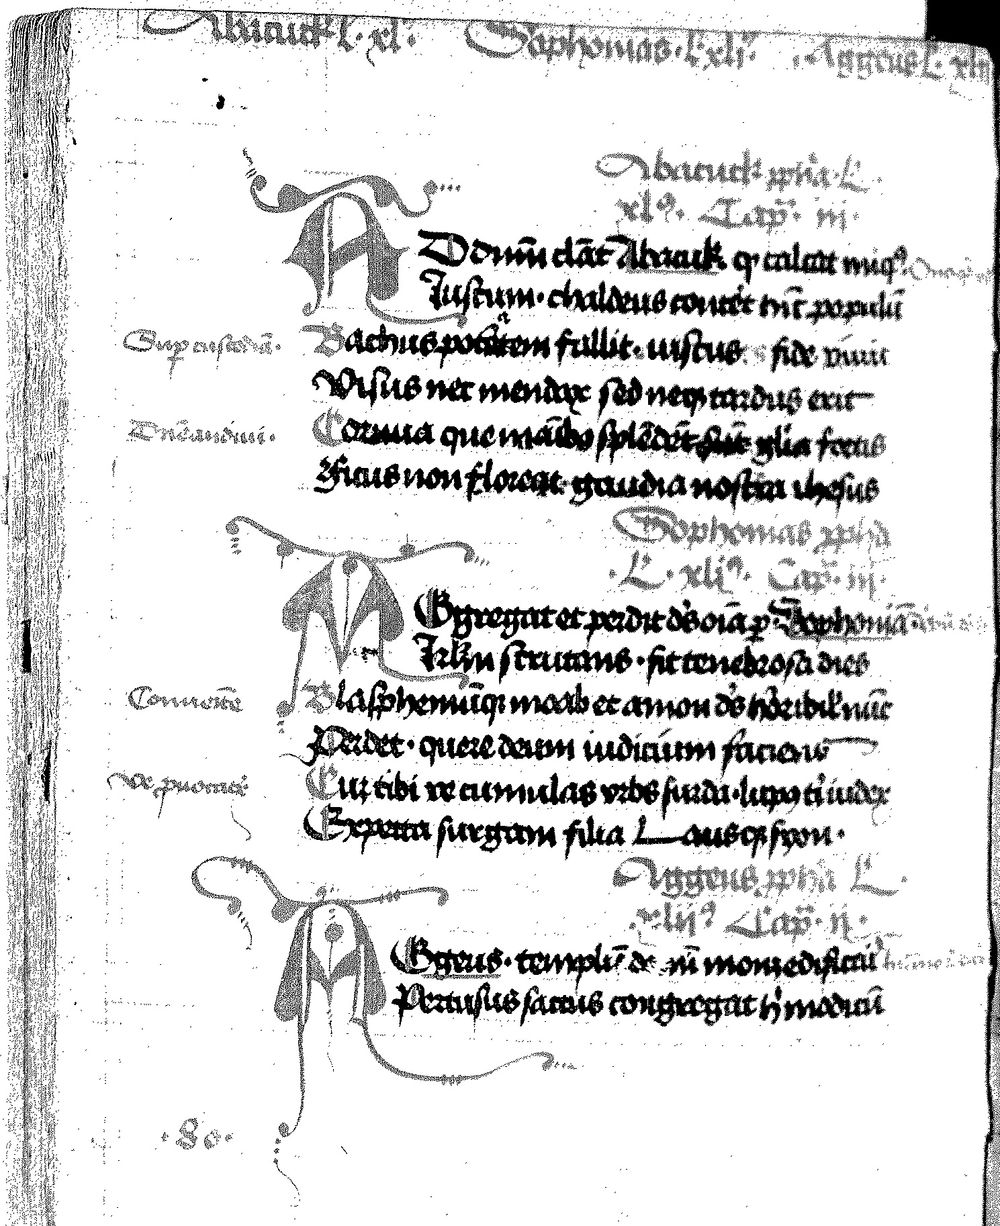 Abacuck L. xl. Sophonias. L. xli. Aggeus L. xlii
Abacuck ppha. L.
xlus. Cap. iii.
Ad dnm clāt Abacuk. q calcat iniqus.
Iustum. chaldeus
Sup custodiā.
Bachus potātem fallit. iustus fide viuit
Visus nec mendax sed neqz tardus erit
Dne audiui.
Cornua que māibo splēdēt sūt glia fortis
Ficus non floreat. gaudia nostra ihesus
Sophonias ppha
L. xlius. Cap. iii.
Aggregat et perdit ds oīa p Sophoniā.
Irlm scrutans. fit tenebrosa dies
Blasphemūqz moab et amon ds
Conuenite
Perdet. quere deum iudicium faciens
Ve puocatx
Cur tibi ve cumulas vrbs surda. iudex
Expecta surgam filia Laus syon.
Aggeus ppha L.
xliius Cap. ii.
Aggeus. templū
Pertusus saccus congregat modicū
.80.